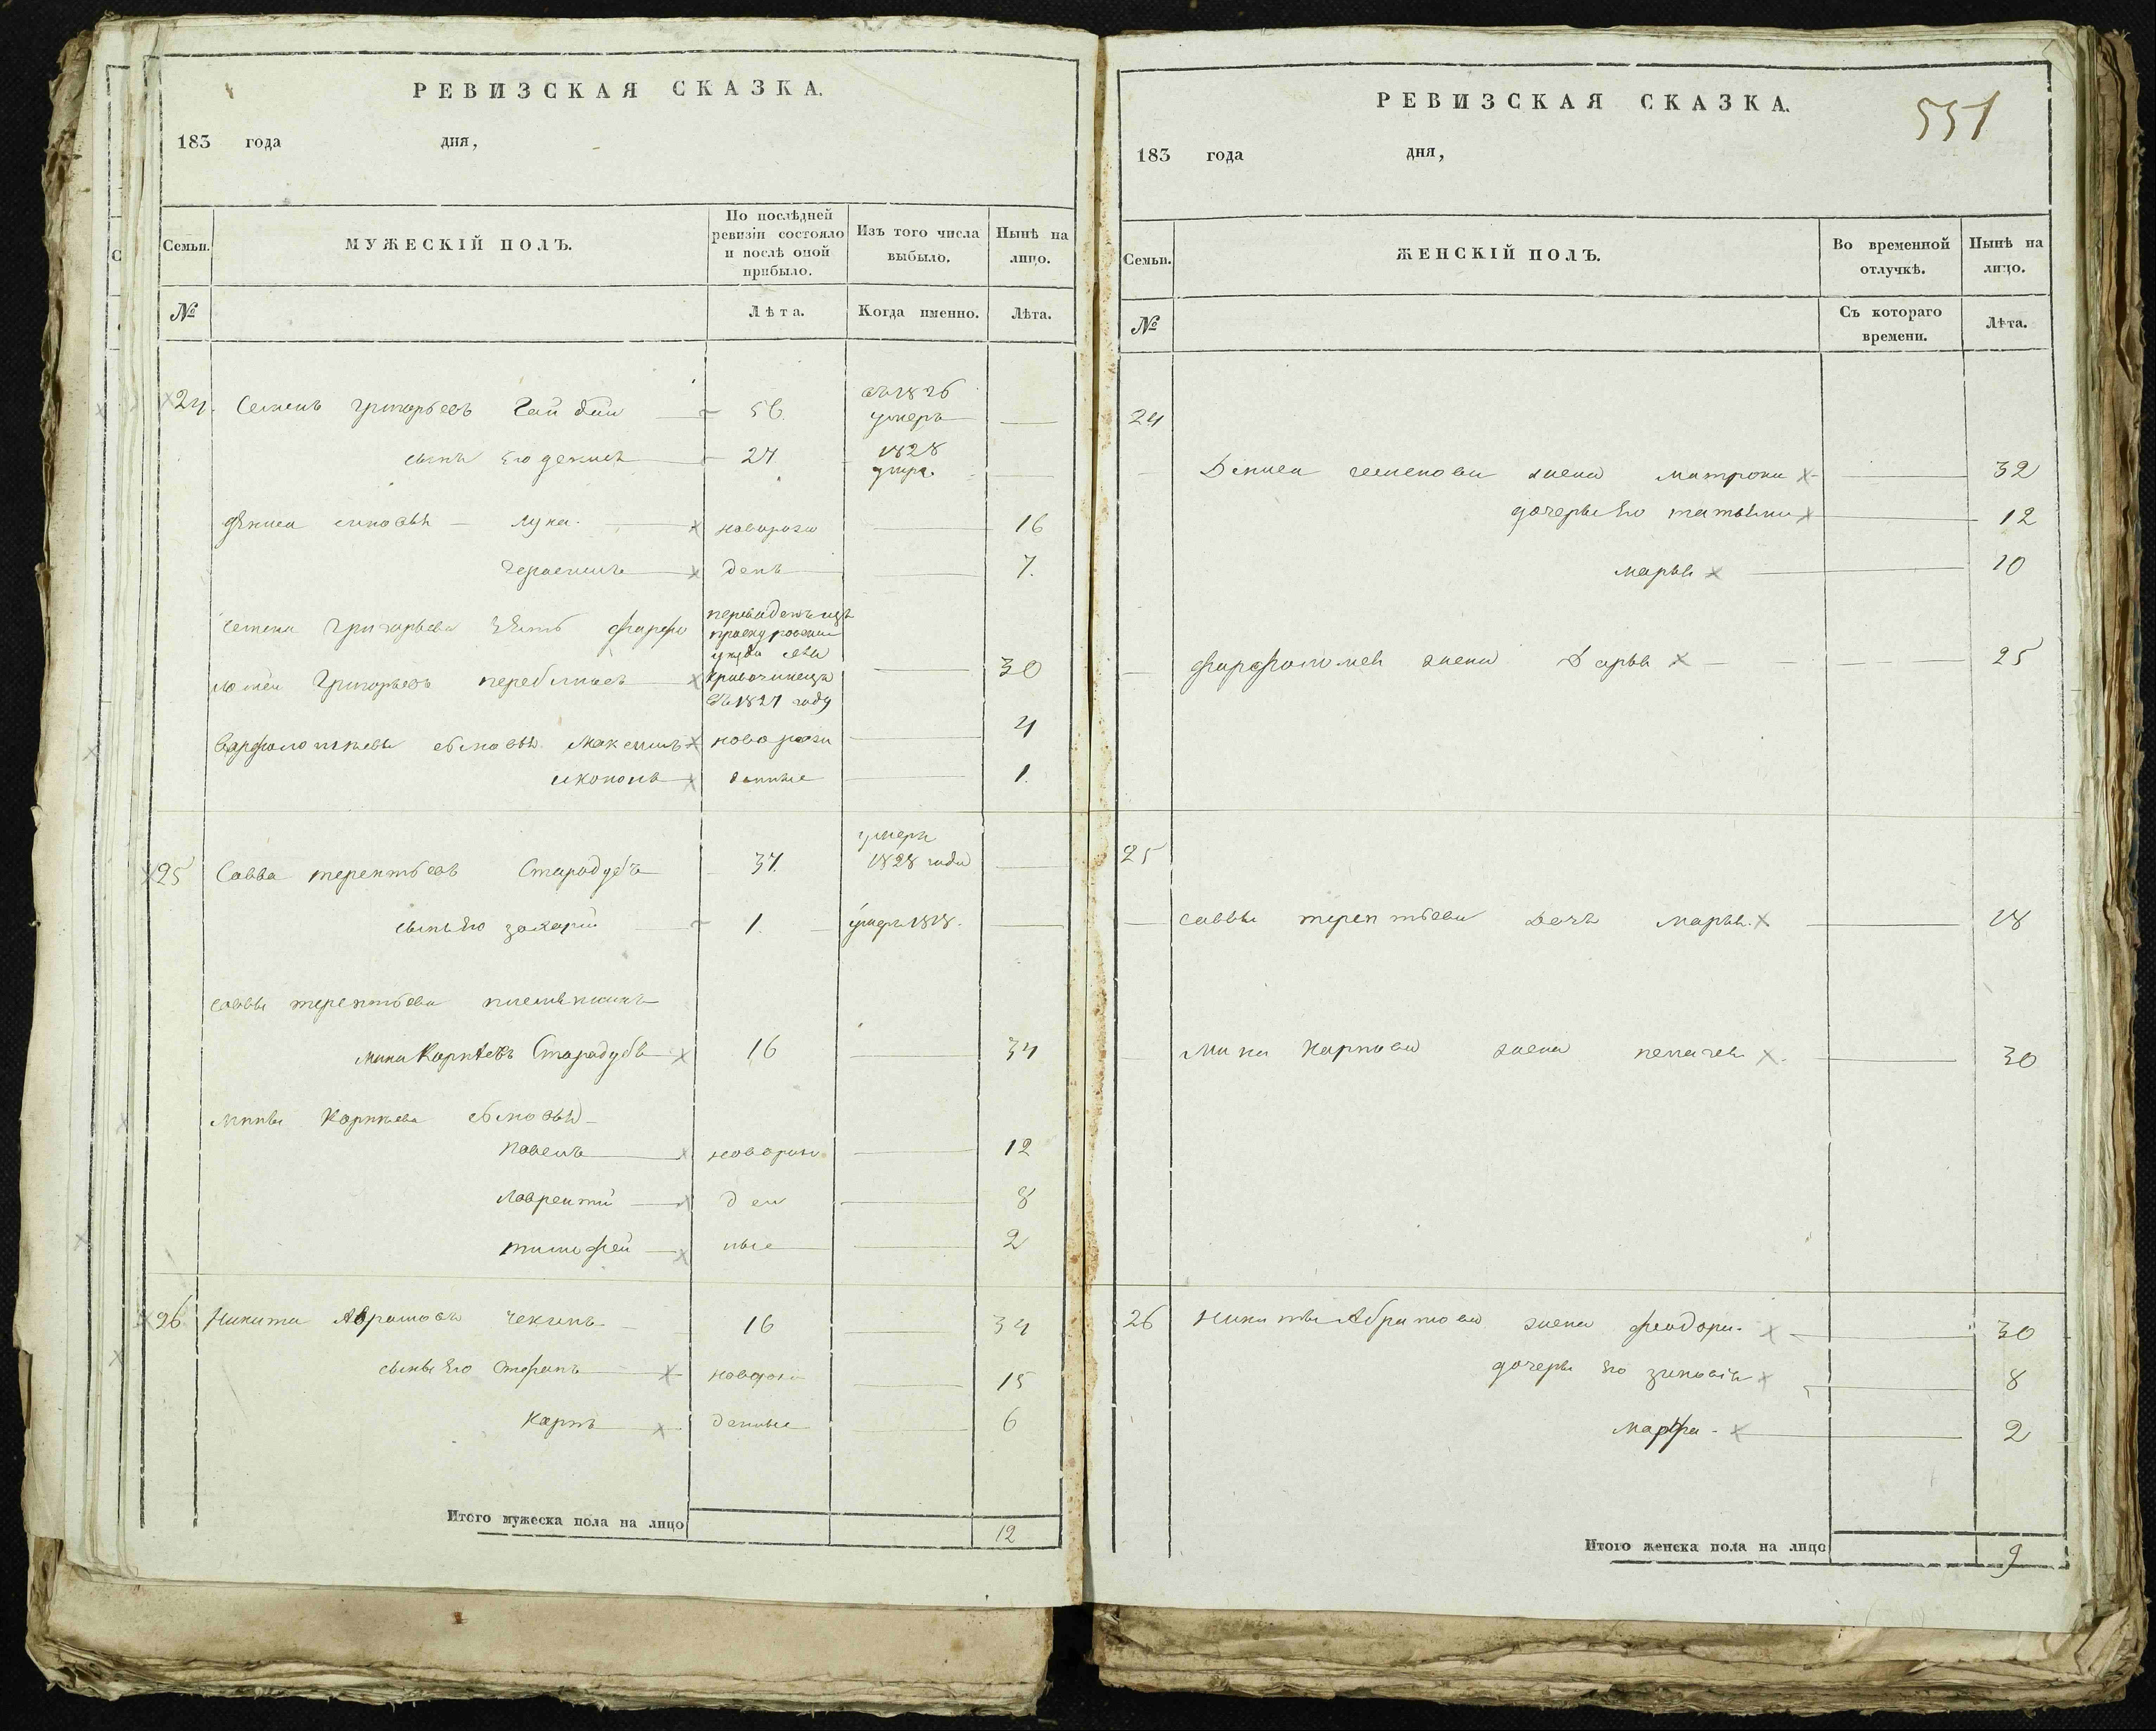 РЕВИЗСКАЯ СКАЗКА.
183 года дня,
Семьи. МУЖЕСКІЙ ПОЛЪ. По послѣдней ревизіи состояло и послѣ оной прибыло. Изъ того числа выбыло. Нынѣ на лицо.
№ Лѣта. Когда именно. Лѣта.
24. Семенъ Григорьевъ 56 въ 1826 умеръ
сынъ Его денисъ 24 1828 умре.
дениса сыновья Лука новорож 16
герасимъ денъ 7.
Семена Григорьева зять фарфо
ломей Григорьевъ 30
въ 1827 году
Варфоломѣева сыновья Максимъ новорож 4
данные 1.
25 Савва терентьевъ Стародубъ 37. умеръ 1828 года
сынъ Его захарій 1. умеръ 1818.
саввы терентьева племянникъ
мина Карпѣевъ Стародубъ 16 34
мины Карпѣева сыновья
павелъ новорож 12
лаврентій ден 8
тимофей ные 2
26 Никита Аврамовъ чеканъ 16 34
сынъ Его Стефанъ новорож 15
карпъ денные 6
Итого мужеска пола на лицо 12
РЕВИЗСКАЯ СКАЗКА.
551
183 года дня,
Семьи. ЖЕНСКІЙ ПОЛЪ. Во временной отлучкѣ. Нынѣ на лицо.
№ Съ котораго времени. Лѣта.
24
Дениса семенова жена матрона 32
дочеры Его татьяна 12
марья 10
фарфоломея жена Дарья 25
25
саввы терентьева Дочь марья. 18
Мины Карпова жена пелагея 30
26 Никиты Абрамова жена феодора. 30
дочеры Его зиновія 8
марфа. 2
Итого женска пола на лицо 9